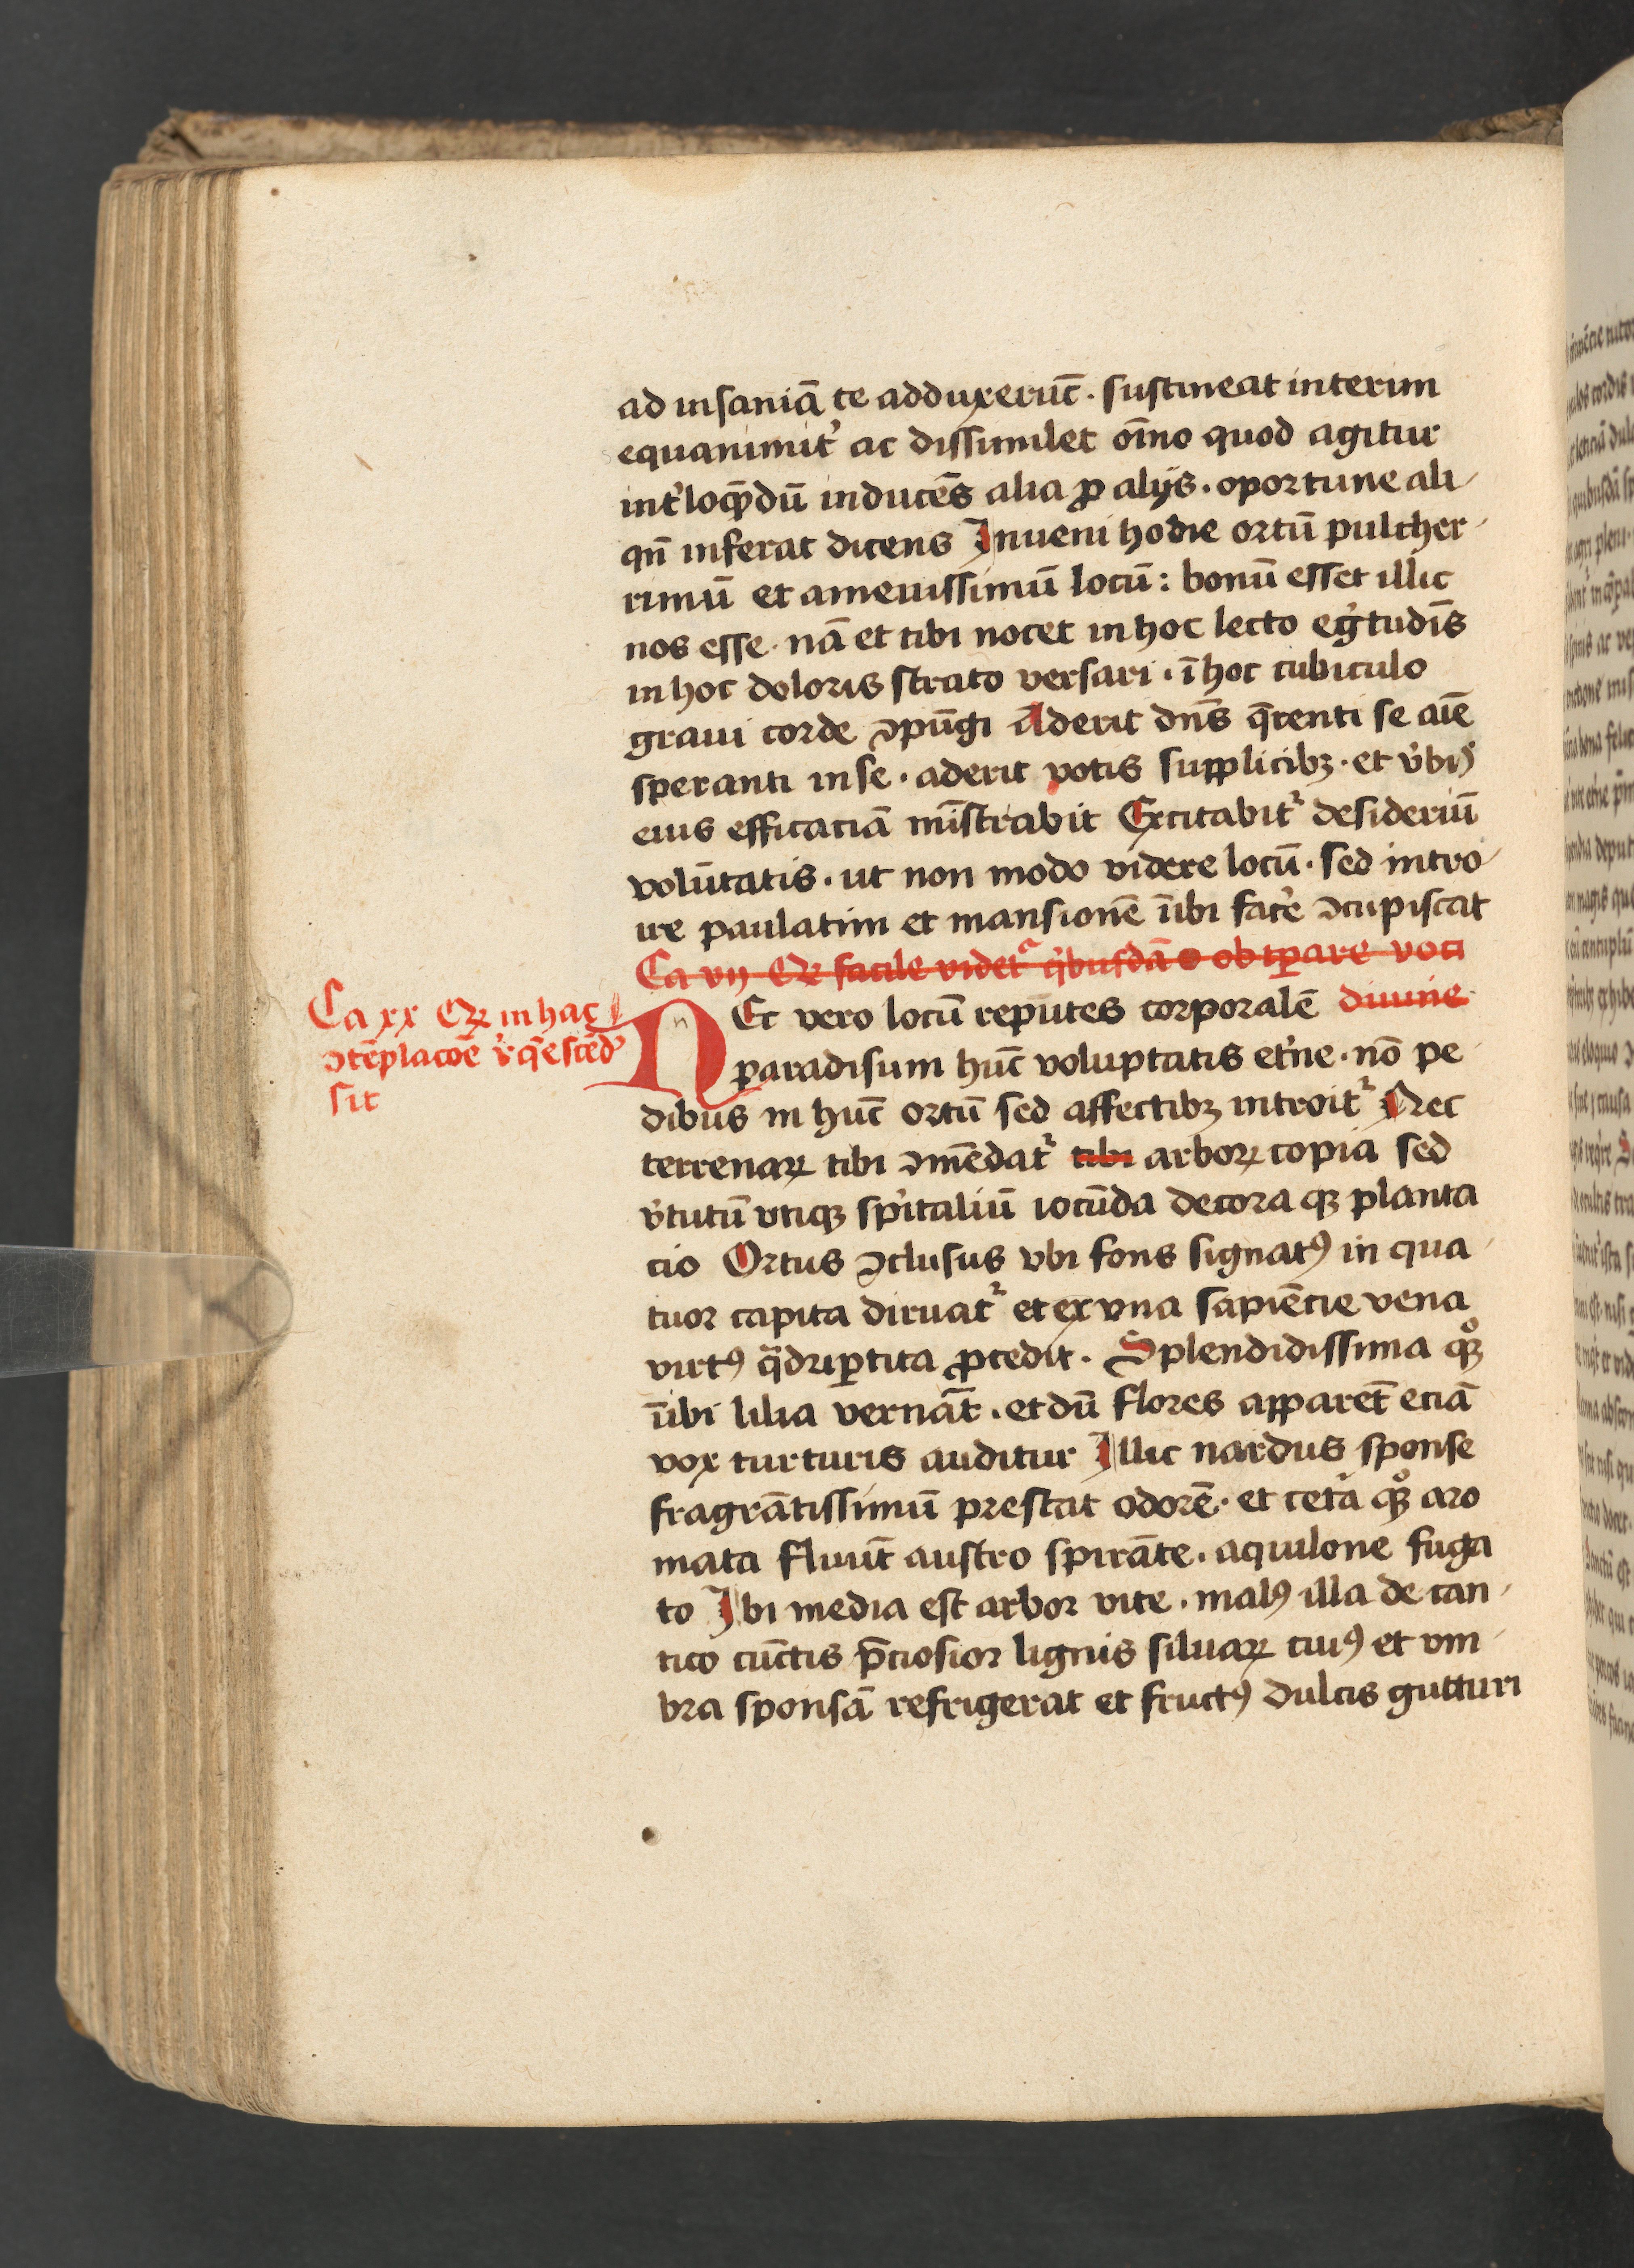 ad insaniā te adduxerūt · sustineat interim
equanimit᷑ ac dissimulet oīno quod agitur
int᷑loq̄ndū inducēs alia ꝓ alijs · oportune ali
qn̄ inferat dicens Inueni hodie ortū pulcher
rimū et amenissimū locū : bonū esset illic
nos esse · nā et tibi nocet in hoc lecto eg̾tudīs
in hoc doloris strato versari · ī hoc cubiculo
graui corde ↄpūgi Aderit dn̄s q̄renti se aīe
speranti in se · aderit votis supplicibꝫ · et v̾bis
eius efficaciā mīstrabit Excitabit᷑ desideriū
volūtatis · ut non modo videre locū · sed intro
ire paulatim et mansionē īibi fac̾e ↄcupiscat
Ca vij Qꝝ facile videt᷑ q̾busdā obtꝑare voci
Ca xx Qꝝ in hac
ↄtēplacōe v̾ q̄escēd̾
sit
NEc vero locū reputes corporalē diuine
paradisum hūc voluptatis et̾ne · nō pe
dibus in hūc ortū sed affectibꝫ introit᷑ Nec
terrenaꝝ tibi ↄmēdat᷑ tibi arboꝝ copia sed
v̾tutū vtiqꝫ sp̾italiū iocūda decora qꝫ planta
cio Ortus ↄclusus vbi fons signatꝰ in qua
tuor capita diruat᷑ et ex vna sapiēcie vena
virtꝰ q̄driꝑtita ꝓcedit · Splendidissima qꝫͦ
īibi lilia vernāt · et dū flores apparēt eciā
vox turturis auditur Illic nardus sponse
fragrātissimū prestat odorē · et cet̾a qꝫͦ aro
mata fluūt austro spirāte · aquilone fuga
to Ibi media est arbor vite · malꝰ illa de can
tico cūctis p̄ciosior lignis siluaꝝ cuiꝰ et vm
bra sponsā refrigerat et fructꝰ dulcis gutturi